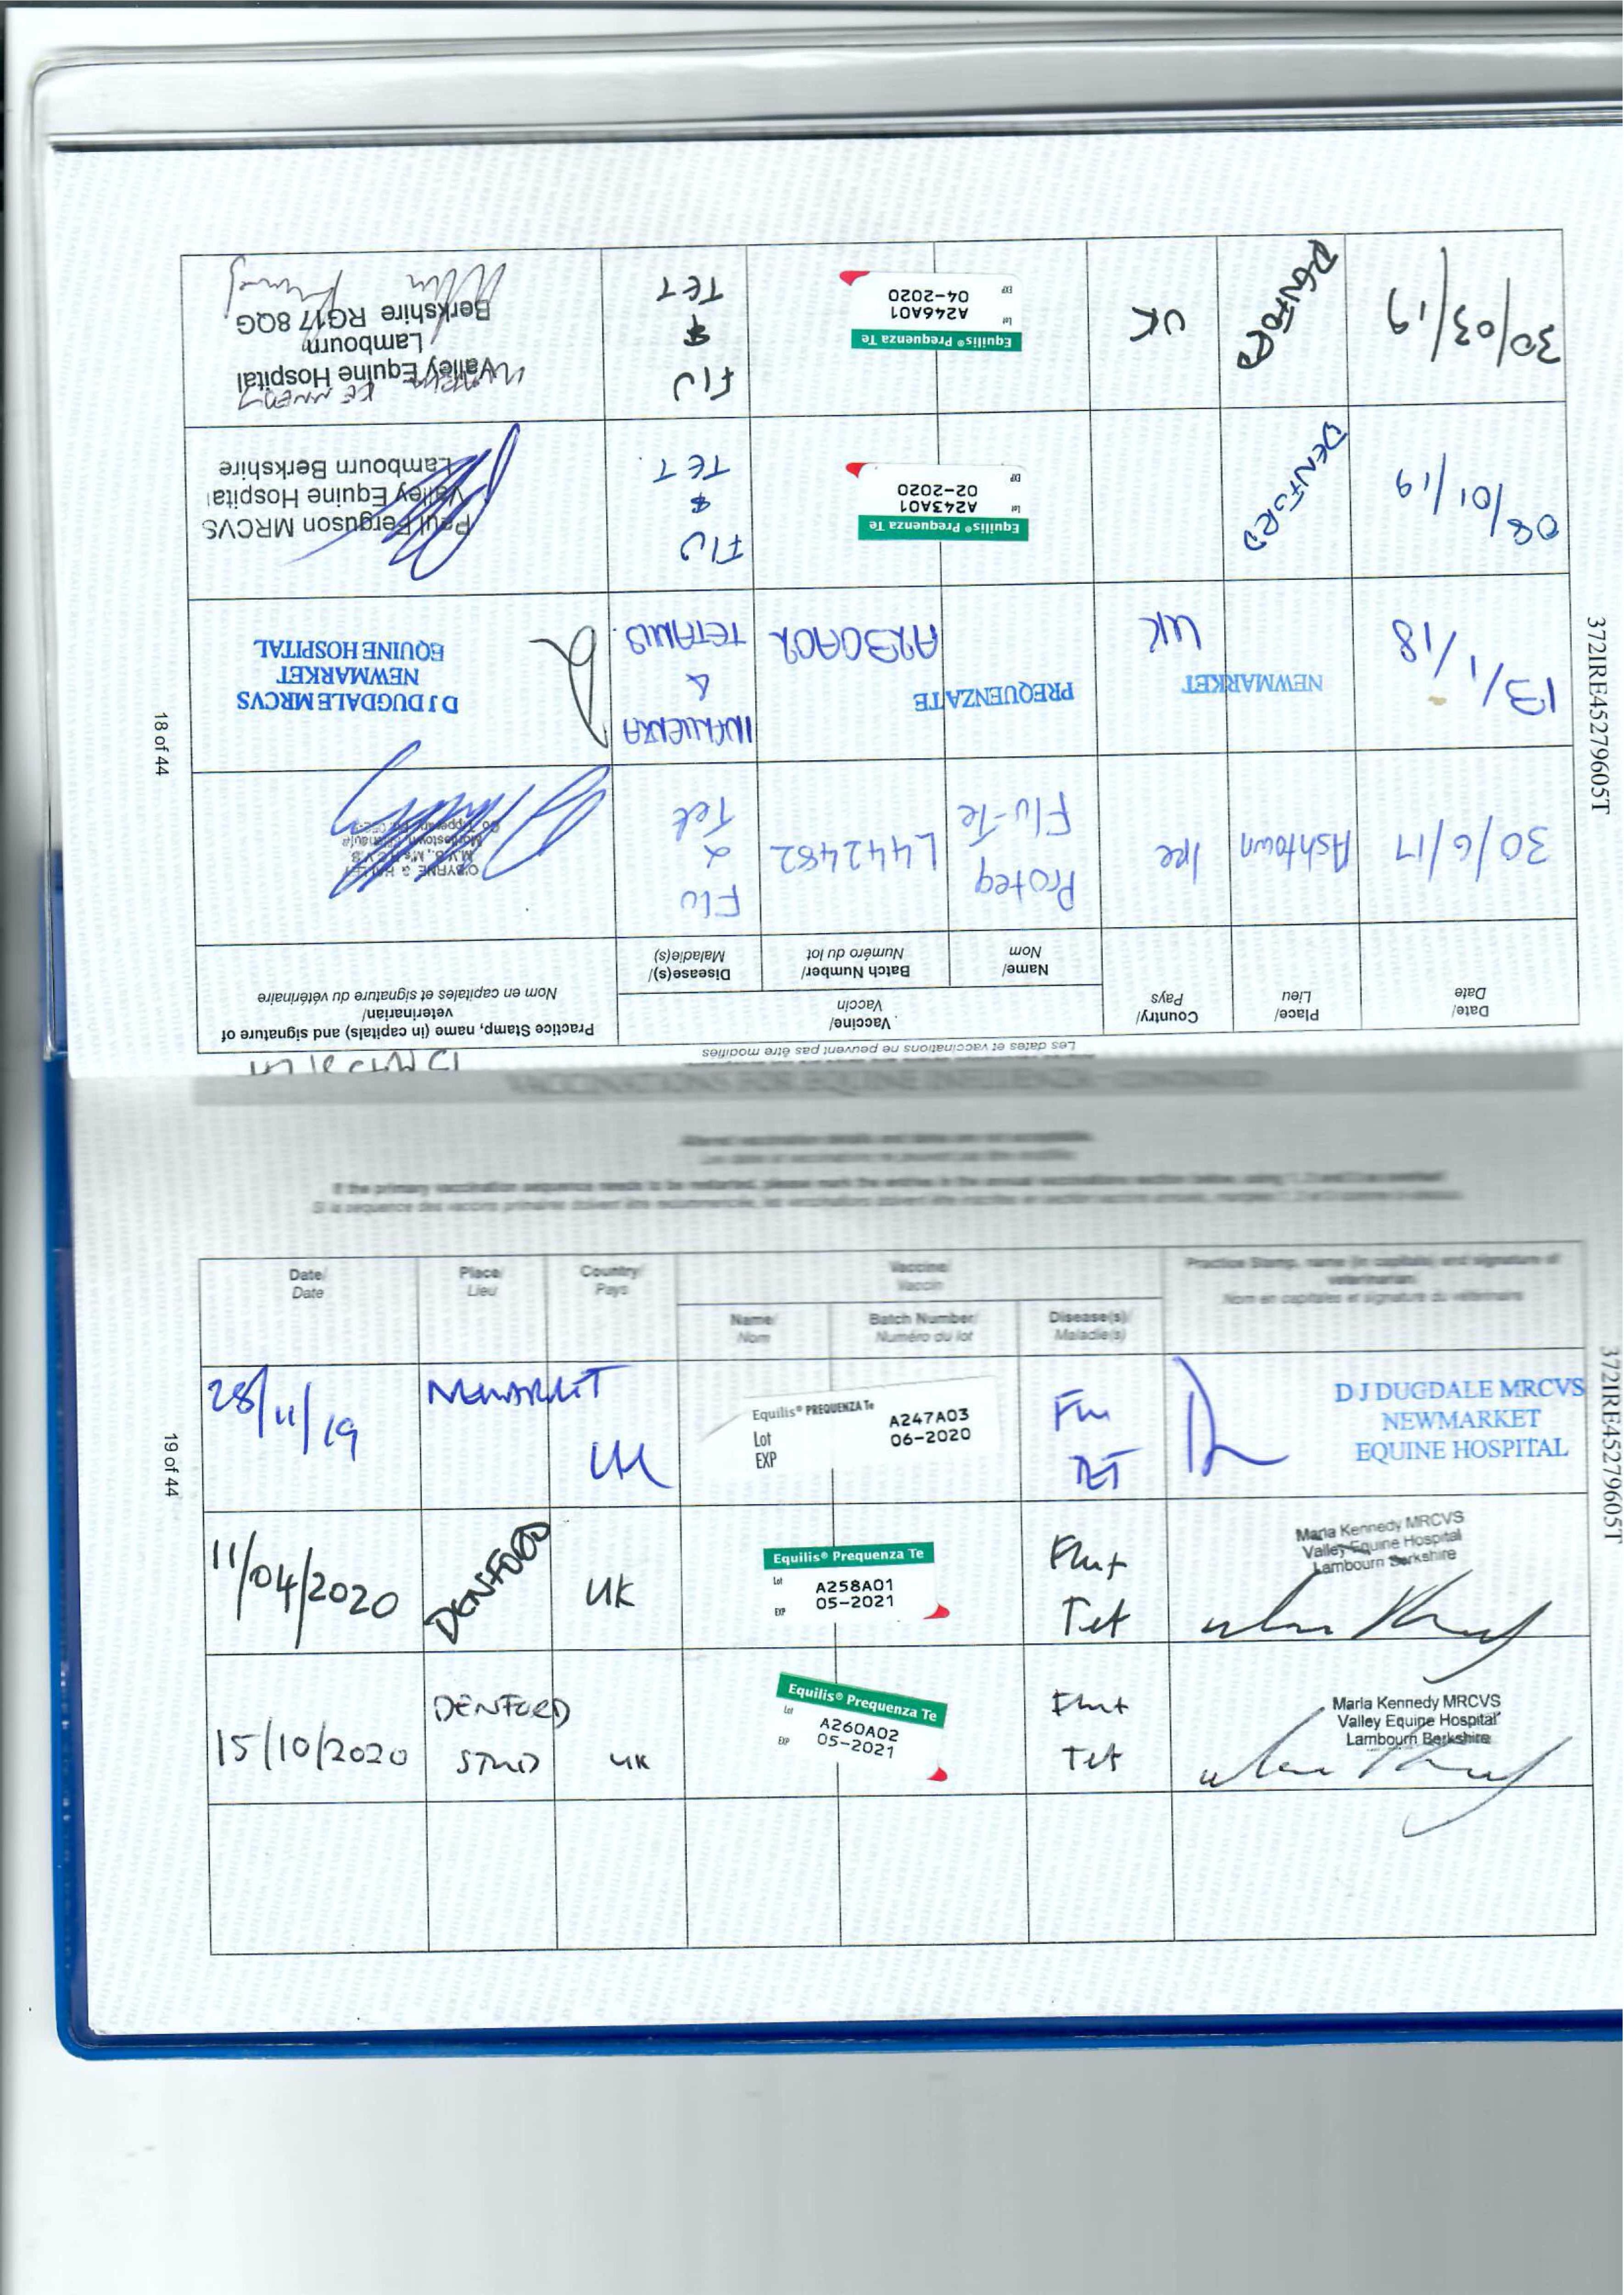 Les dates et vaccinations ne peuvent pas être modifiés
Date/
Date
Place/
Lieu
Country/
Pays
Vaccine/
Vaccin
Name/
Nom
Batch Number/
Numéro du lot
Disease(s)/
Maladie(s)
Practice Stamp, name (in capitals) and signature of
veterinarian/
Nom en capitales et signature du vétérinaire
30/6/17
Ashtown
Ire
Proteq
Flu-Te
L442482
Flu
&
Tet
13/1/18
NEWMARKET
UK
PREQUENZA TE
A230A02
INFLUENZA
&
TETANUS.
D J DUGDALE MRCVS
NEWMARKET
EQUINE HOSPITAL
08/01/19
DENFORD
Equilis® Prequenza Te
Lot
A243A01
EXP
02-2020
FLU
&
TET.
Paul Ferguson MRCVS
Valley Equine Hospital
Lambourn Berkshire
30/03/19
DENFORD
UK
Equilis® Prequenza Te
Lot
A246A01
EXP
04-2020
FLU
&
TET
Valley Equine Hospital
Lambourn
Berkshire RG17 8QG
18 of 44
372IRE45279605T
VACCINATIONS FOR EQUINE INFLUENZA - CONTINUED
Altered vaccination details and dates are not acceptable.
Les dates et vaccinations ne peuvent pas être modifiés
If the primary vaccination sequence needs to be restarted, please mark the entries in the annual vaccinations section below, using 1, 2 and 3 as needed
Date/
Date
Place/
Lieu
Country/
Pays
Vaccine/
Vaccin
Name/
Nom
Batch Number/
Numéro du lot
Disease(s)/
Maladie(s)
Practice Stamp, name (in capitals) and signature of
veterinarian/
Nom en capitales et signature du vétérinaire
28/11/19
NEWMARKET
UK
Equilis® PREQUENZA Te
Lot A247A03
EXP 06-2020
Flu
TET
D J DUGDALE MRCVS
NEWMARKET
EQUINE HOSPITAL
11/04/2020
DENFORD
UK
Equilis® Prequenza Te
Lot
A258A01
EXP
05-2021
Flu+
Tet
Maria Kennedy MRCVS
Valley Equine Hospital
Lambourn Berkshire
15/10/2020
DENFORD
STUD
UK
Equilis® Prequenza Te
Lot
A260A02
EXP
05-2021
Flu+
Tet
Maria Kennedy MRCVS
Valley Equine Hospital
Lambourn Berkshire
19 of 44
372IRE45279605T